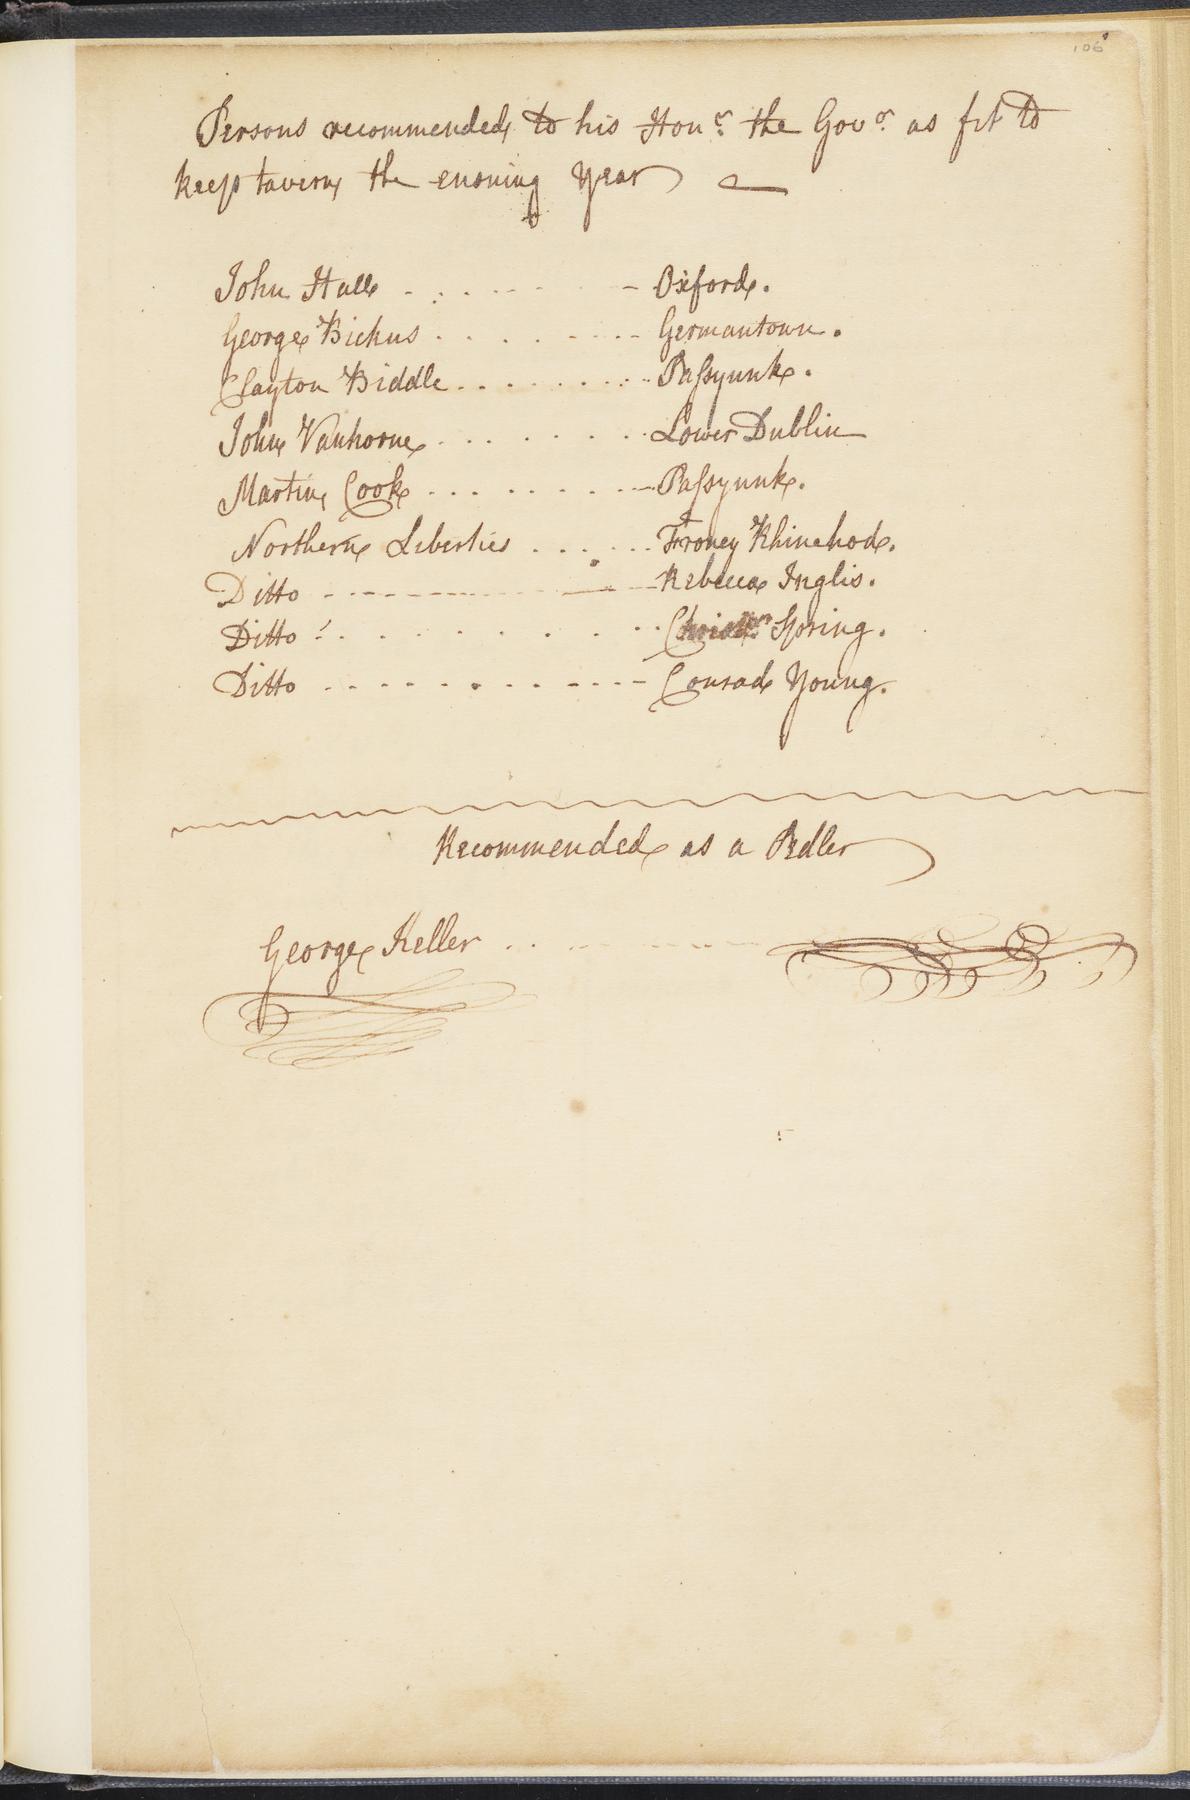 106
Persons recommended to his Honr. the Govr. as fit to
keep tavern the ensuing Year
John Hall - . . - - - - Oxford.
George Bickus . . . . - - - - Germantown.
Clayton Biddle . . . . . . . . . Passyunk.
John Vanhorne . . . . . . . . Lower Dublin
Martin Cook . . . . . . . . - Passyunk.
Northern Liberties . . . . . . Froney Rhinehod.
Ditto - - - - - - - - - - Rebecca Inglis.
Ditto . . . . . . . . . . Christn. Spring.
Ditto - - - - . - . - - - - - Conrad Young.
Recommended as a Pedler
George Keller . . - - - - - -